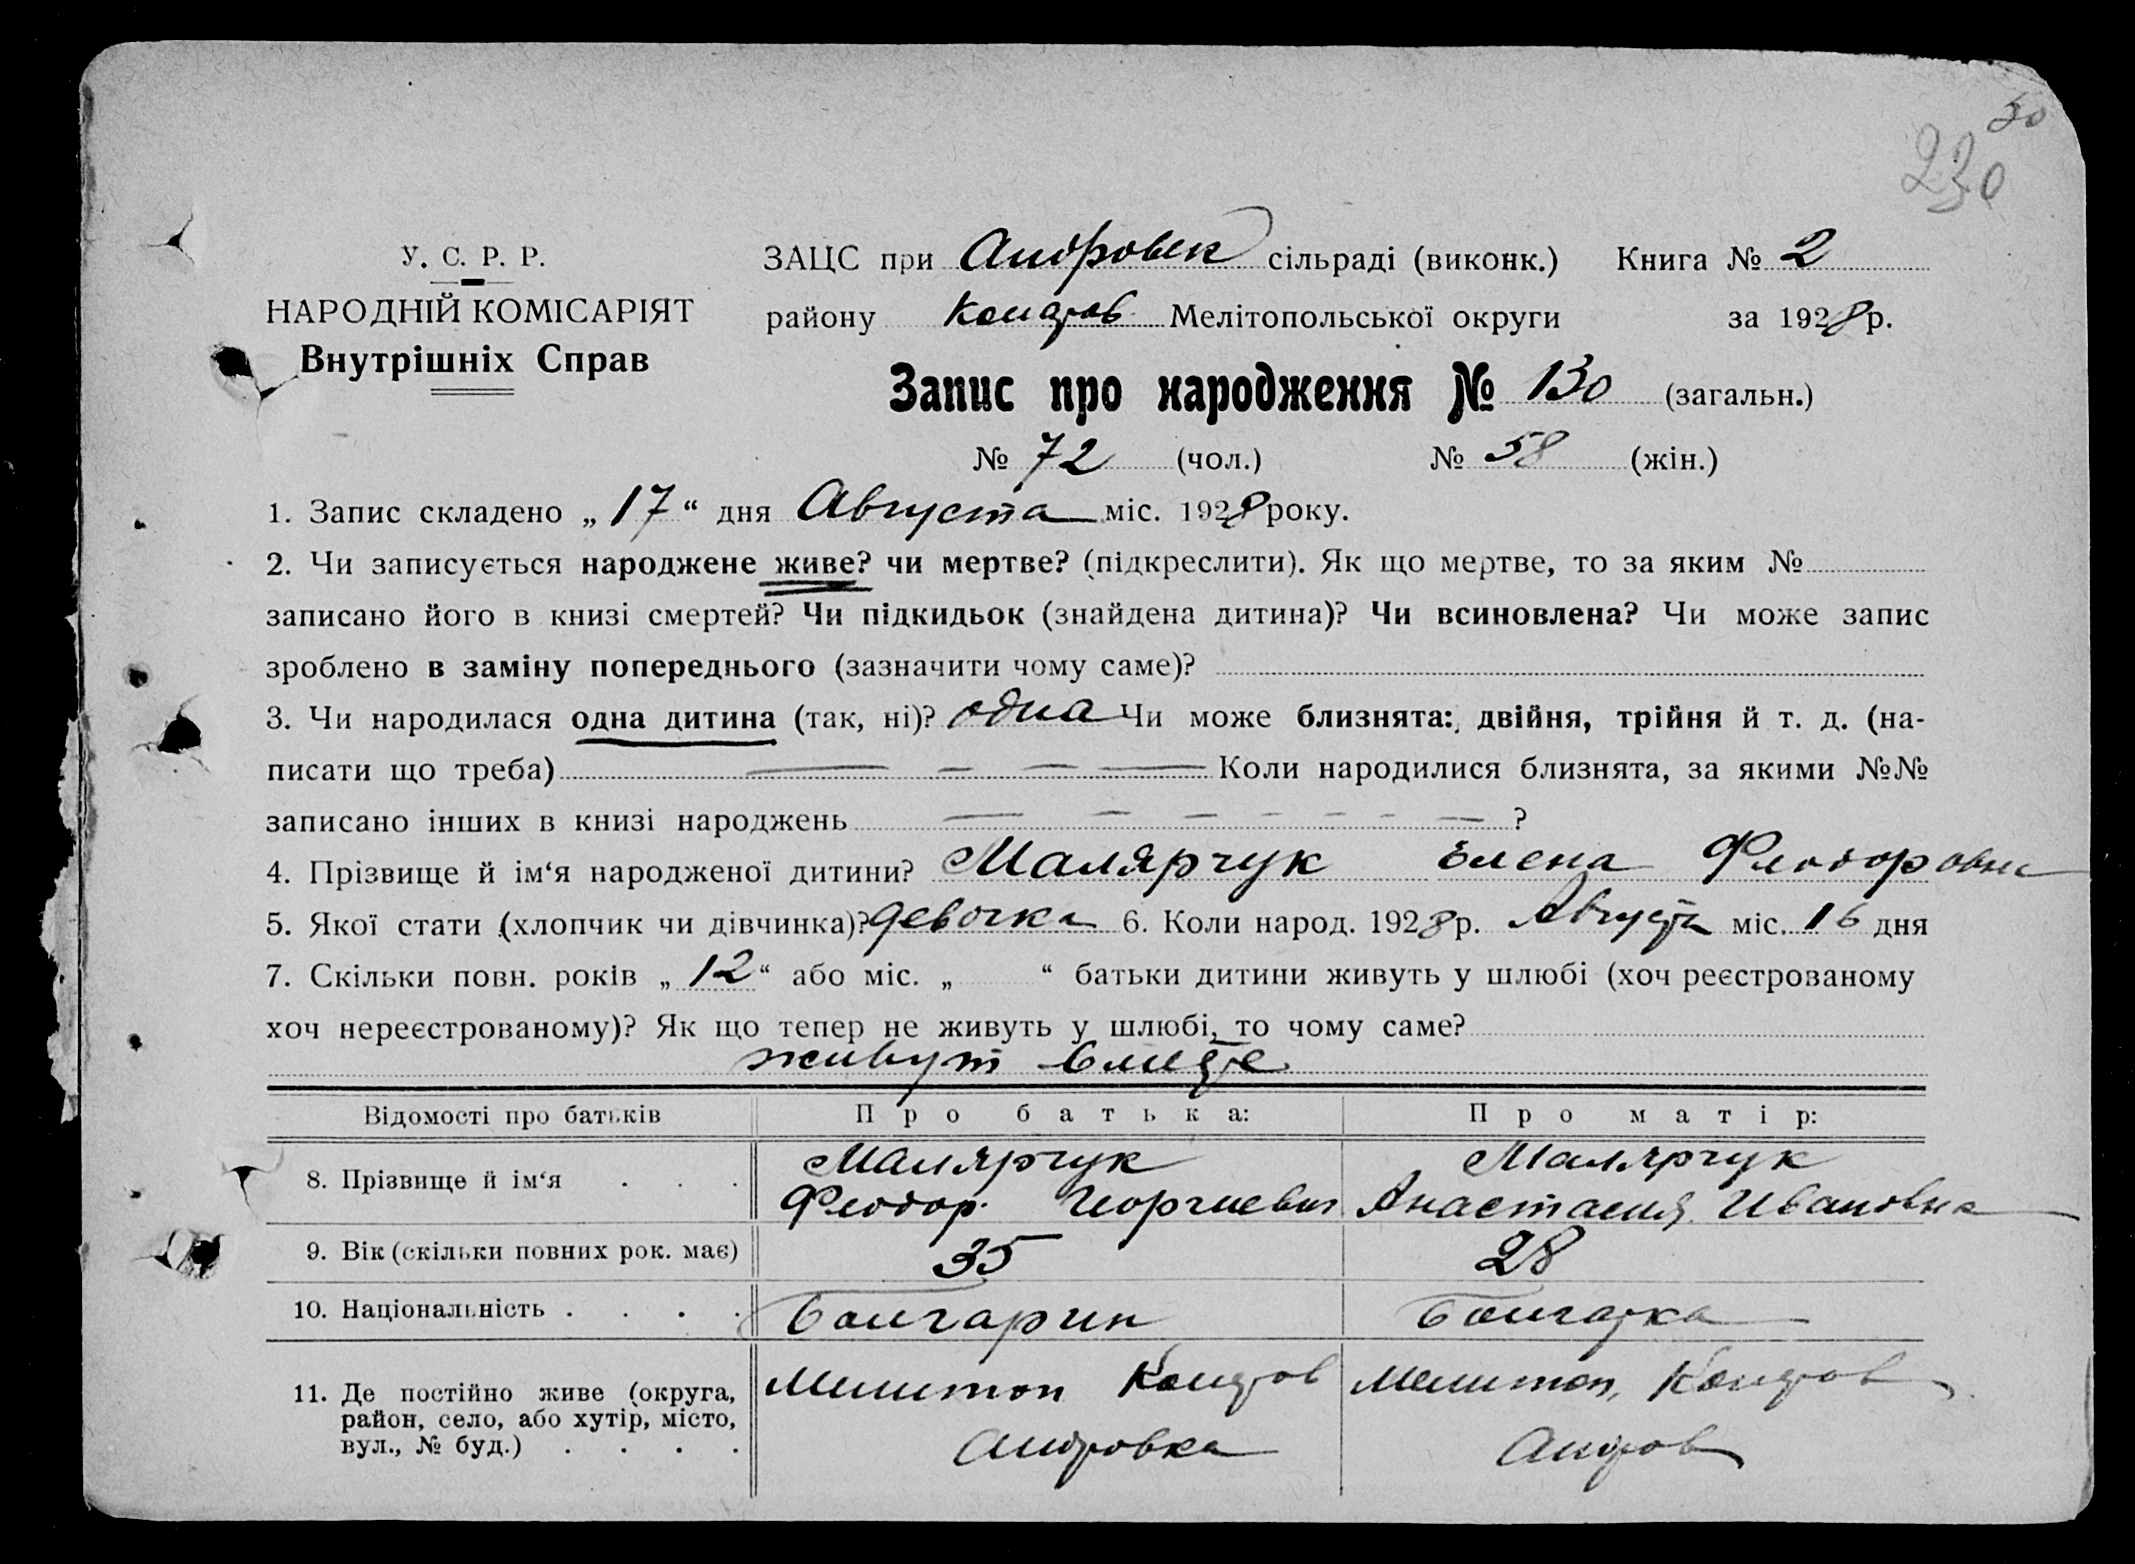 30
230
У. С. Р. Р.
НАРОДНІЙ КОМІСАРІЯТ
Внутрішніх Справ
ЗАЦС при Андровск сільраді (виконк.) Книга № 2
району Кондров Мелітопольської округи за 1928 р.
Запис про народження № 130 (загальн.)
№ 72 (чол.) № 58 (жін.)
1. Запис складено „ 17 “ дня Августа міс. 1928 року.
2. Чи записується народжене живе? чи мертве? (підкреслити). Як що мертве, то за яким №
записано його в книзі смертей? Чи підкидьок (знайдена дитина)? Чи всиновлена? Чи може запис
зроблено в заміну попереднього (зазначити чому саме)?
3. Чи народилася одна дитина (так, ні)? одна Чи може близнята: двійня, трійня й т. д. (на-
писати що треба) — — — — Коли народилися близнята, за якими №№
записано інших в книзі народжень — — — — — — — ?
4. Прізвище й ім‘я народженої дитини? Малярчук Елена Феодоровна
5. Якої стати (хлопчик чи дівчинка)? девочка 6. Коли народ. 1928 р. Августа міс. 16 дня
7. Скільки повн. років „ 12 “ або міс. „ “ батьки дитини живуть у шлюбі (хоч реєстрованому
хоч нереєстрованому)? Як що тепер не живуть у шлюбі, то чому саме?
живут вместе
Відомості про батьків Про батька: Про матір:
8. Прізвище й ім‘я . . . Малярчук Феодор Георгиевич Малярчук Анастасия Ивановна
9. Вік (скільки повних рок. має) 35 28
10. Національність . . . . Болгарин Болгарка
11. Де постійно живе (округа, район, село, або хутір, місто, вул., № буд.) . . . . Мелитоп Кондров Андровка Мелитоп, Кондров Андров